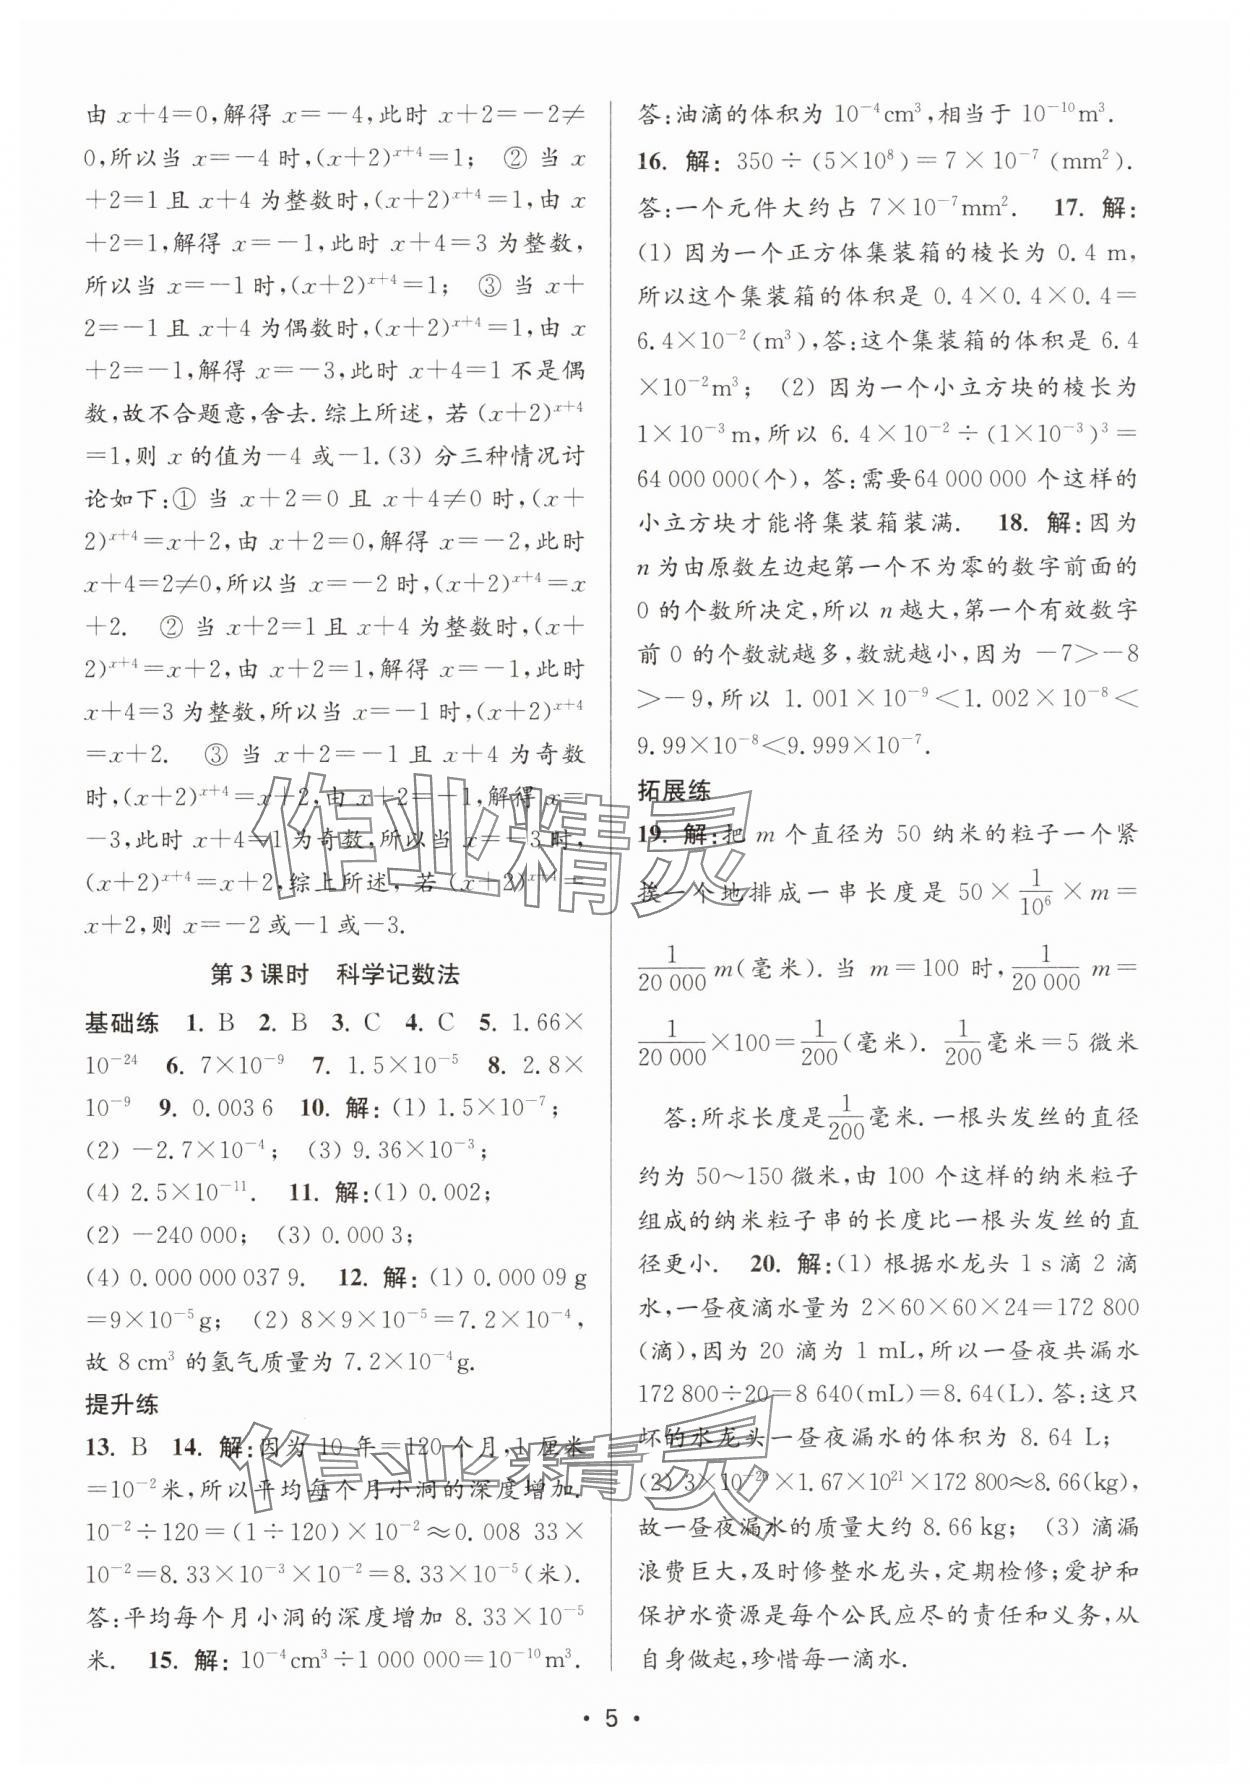 由 x+4=0,解得 x=-4,此时 x+2=-2≠
0,所以当 x=-4 时,(x+2)^{x+4}=1; ② 当 x
+2=1 且 x+4 为整数时,(x+2)^{x+4}=1,由 x
+2=1,解得 x=-1,此时 x+4=3 为整数,
所以当 x=-1 时,(x+2)^{x+4}=1; ③ 当 x+
2=-1 且 x+4 为偶数时,(x+2)^{x+4}=1,由 x
+2=-1,解得 x=-3,此时 x+4=1 不是偶
数,故不合题意,舍去.综上所述,若 (x+2)^{x+4}
=1,则 x 的值为-4 或-1.(3) 分三种情况讨
论如下:① 当 x+2=0 且 x+4≠0 时,(x+
2)^{x+4}=x+2,由 x+2=0,解得 x=-2,此时
x+4=2≠0,所以当 x=-2 时,(x+2)^{x+4}=x
+2. ② 当 x+2=1 且 x+4 为整数时,(x+
2)^{x+4}=x+2,由 x+2=1,解得 x=-1,此时
x+4=3 为整数,所以当 x=-1 时,(x+2)^{x+4}
=x+2. ③ 当 x+2=-1 且 x+4 为奇数
时,(x+2)^{x+4}=x+2,由 x+2=-1,解得 x=
-3,此时 x+4=1 为奇数,所以当 x=-3 时,
(x+2)^{x+4}=x+2,综上所述,若 (x+2)^{x+4}=
x+2,则 x=-2 或-1 或-3.
第 3 课时 科学记数法
基础练 1. B 2. B 3. C 4. C 5. 1.66×
10^{-24} 6. 7×10^{-9} 7. 1.5×10^{-5} 8. 2.8×
10^{-9} 9. 0.003 6 10. 解:(1) 1.5×10^{-7};
(2) -2.7×10^{-4}; (3) 9.36×10^{-3};
(4) 2.5×10^{-11}. 11. 解:(1) 0.002;
(2) -240 000; (3) 0.000 3;
(4) 0.000 000 037 9. 12. 解:(1) 0.000 09 g
=9×10^{-5} g; (2) 8×9×10^{-5}=7.2×10^{-4},
故 8 cm³ 的氢气质量为 7.2×10^{-4} g.
提升练
13. B 14. 解:因为 10 年=120 个月,1 厘米
=10^{-2} 米,所以平均每个月小洞的深度增加.
10^{-2}÷120=(1÷120)×10^{-2}≈0.008 33×
10^{-2}=8.33×10^{-3}×10^{-2}=8.33×10^{-5}(米).
答:平均每个月小洞的深度增加 8.33×10^{-5}
米. 15. 解:10^{-4} cm³÷1 000 000=10^{-10} m³.
答:油滴的体积为 10^{-4} cm³,相当于 10^{-10} m³.
16. 解:350÷(5×10^{8})=7×10^{-7}(mm²).
答:一个元件大约占 7×10^{-7} mm². 17. 解:
(1) 因为一个正方体集装箱的棱长为 0.4 m,
所以这个集装箱的体积是 0.4×0.4×0.4=
6.4×10^{-2}(m³),答:这个集装箱的体积是 6.4
×10^{-2} m³; (2) 因为一个小立方块的棱长为
1×10^{-3} m,所以 6.4×10^{-2}÷(1×10^{-3})³=
64 000 000(个),答:需要64 000 000 个这样的
小立方块才能将集装箱装满. 18. 解:因为
n 为由原数左边起第一个不为零的数字前面的
0 的个数所决定,所以 n 越大,第一个有效数字
前 0 的个数就越多,数就越小,因为 -7>-8
>-9,所以 1.001×10^{-9}<1.002×10^{-8}<
9.99×10^{-8}<9.999×10^{-7}.
拓展练
19. 解:把 m 个直径为 50 纳米的粒子一个紧
挨一个地排成一串长度是 50×1/10^{6}×m=
1/20 000 m(毫米).当 m=100 时,1/20 000 m=
1/20 000×100=1/200(毫米). 1/200毫米=5 微米
答:所求长度是1/200毫米.一根头发丝的直径
约为 50~150 微米,由 100 个这样的纳米粒子
组成的纳米粒子串的长度比一根头发丝的直
径更小. 20. 解:(1) 根据水龙头 1 s 滴 2 滴
水,一昼夜滴水量为 2×60×60×24=172 800
(滴),因为 20 滴为 1 mL,所以一昼夜共漏水
172 800÷20=8 640(mL)=8.64(L).答:这只
坏的水龙头一昼夜漏水的体积为 8.64 L;
(2) 3×10^{-26}×1.67×10^{21}×172 800≈8.66(kg),
故一昼夜漏水的质量大约 8.66 kg; (3) 滴漏
浪费巨大,及时修整水龙头,定期检修;爱护和
保护水资源是每个公民应尽的责任和义务,从
自身做起,珍惜每一滴水.
作业精灵
作业精灵
• 5 •